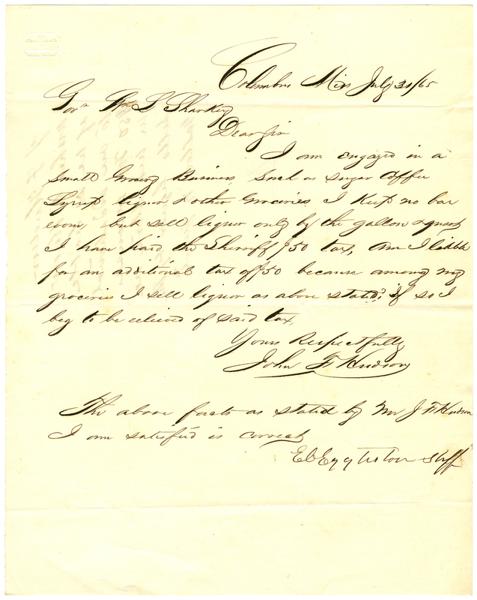 Columbus Miss July 30/65
Gov. Wm L Sharkey
Dear Sir
I am engaged in a
Small Grocery Business Such as Sugar Coffee
Syrup liquor & other Groceries I Keep no bar
room, but sell liquor only by the gallon & quart
I have paid the Sheriff $50 tax, Am I liable
for an additional tax of $50 because among my
groceries I sell liquor as above stated? if so I
beg to be relieved of said tax
Yours Respectfully
John F Hudson
The above facts as stated by Mr J F Hudson
I am satisfied is correct
Shff